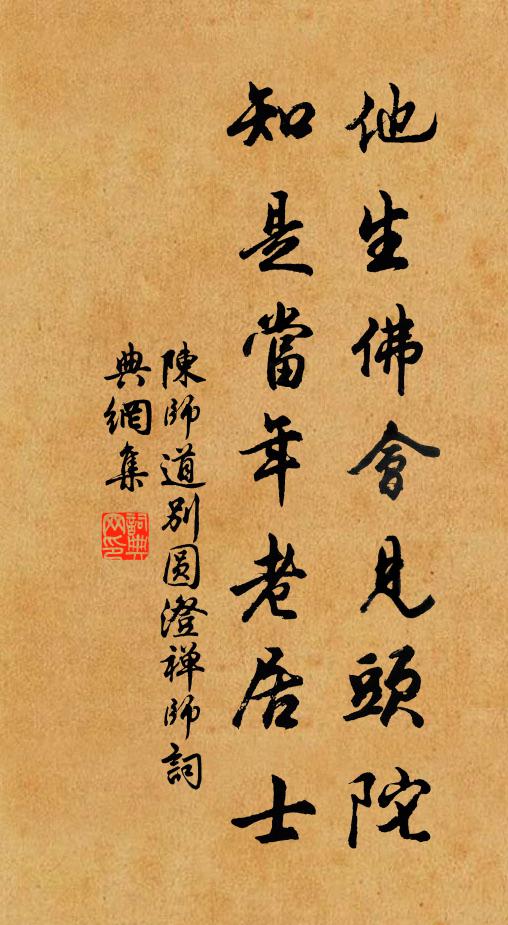 他生佛會見頭陀
知是當年老居士
陳師道別圆澄禅師詞
典網集
詞典
网印